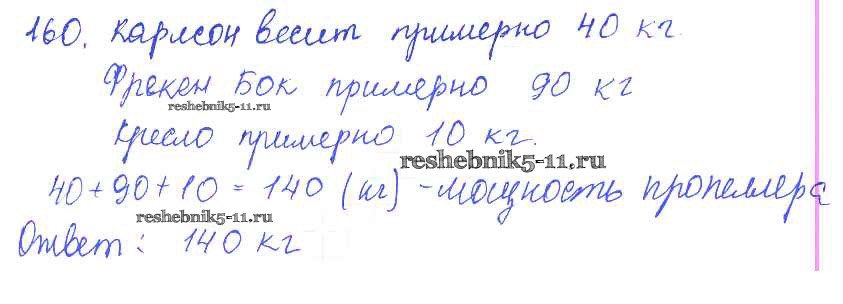 160. Карлсон весит примерно 40 кг.
Фрекен Бок примерно 90 кг
reshebnik5-11.ru
Кресло примерно 10 кг.
reshebnik5-11.ru
40+90+10 = 140 (кг) - мощность пропеллера
reshebnik5-11.ru
Ответ: 140 кг